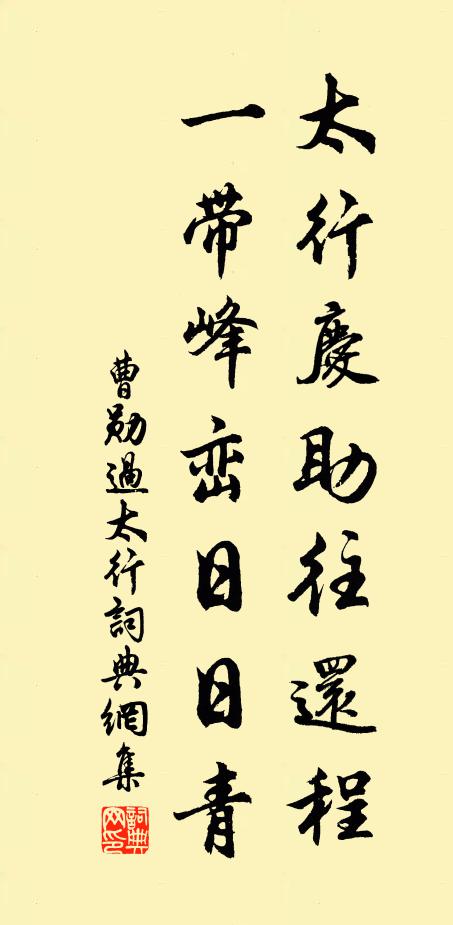 太行慶助往還程
一带峰峦日日青
曹勛過太行詞典網集
詞典网印